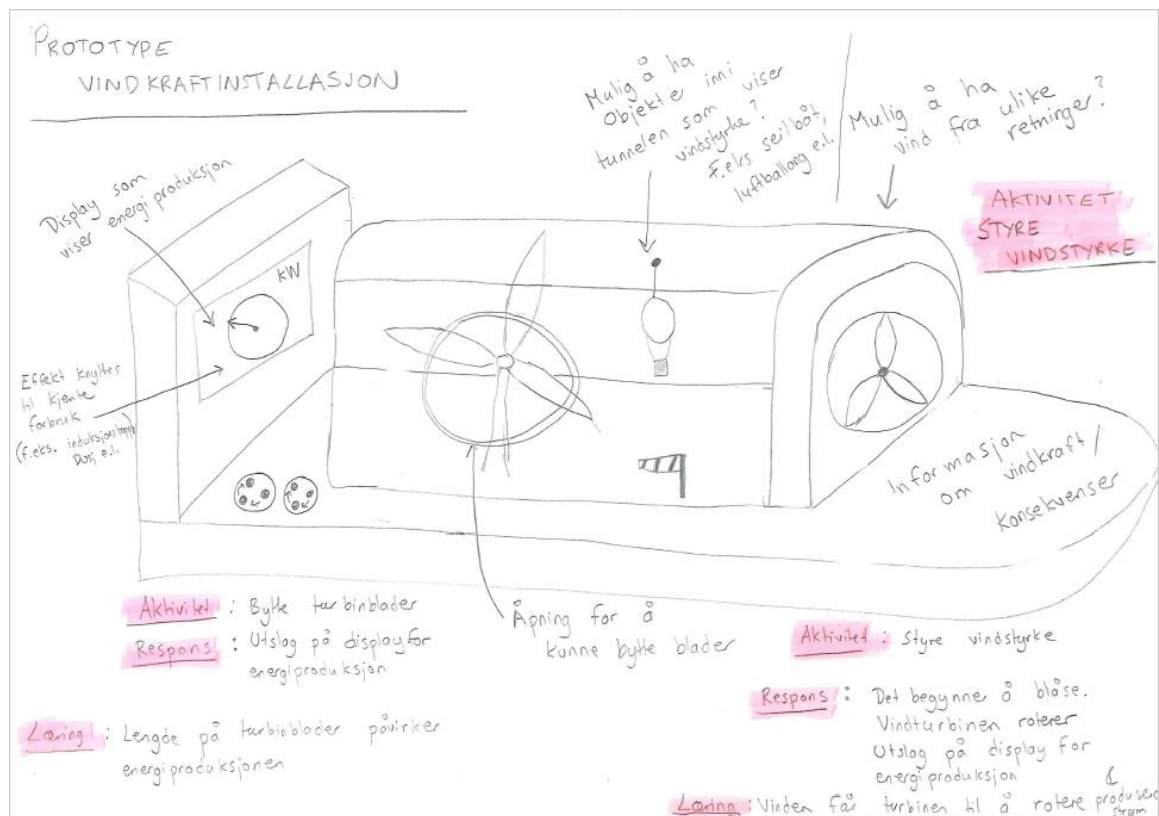 PROTOTYPE
VINDKRAFTINSTALLASJON
Mulig å ha
objekter inni
tunnelen som viser
vindstyrke?
F.eks seilbåt,
luftballong e.l.
Mulig å ha
vind fra ulike
retninger?
AKTIVITET
STYRE
VINDSTYRKE
Display som
viser energiproduksjon
kW
Effekt knyttes
til kjente
forbruk
(f.eks. induksjonstopp,
Dusj e.l.
Informasjon
om vindkraft/
konsekvenser
Aktivitet : Bytte turbinblader
Respons : Utslag på display for
energiproduksjon
Læring : Lengde på turbinblader påvirker
energiproduksjonen
Åpning for å
kunne bytte blader
Aktivitet : Styre vindstyrke
Respons : Det begynner å blåse.
Vindturbinen roterer
Utslag på display for
energiproduksjon
Læring : Vinden får turbinen til å rotere &
produsere
strøm